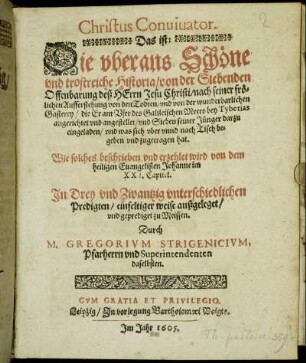 Christus Convivator.
Das ist:
Die vberaus Schöne
vnd trostreiche Historia/ von der Siebenden
Offenbarung deß HErrn Jesu Christi/ nach seiner frö-
lichen Aufferstehung von den Todten/ vnd von der wunderbarlichen
Gasterey/ die Er am Vfer des Galileischen Meers bey Tyberias
angerichtet vnd angestellet/ vnd Sieben seiner Jünger darzu
eingeladen/ vnd was sich vber vnnd nach Tisch be-
geben vnd zugetragen hat.
Wie solches beschrieben vnd erzehlet wird von dem
heiligen Euangelisten Johanne im
XXI. Capitel.
In Drey vnd Zwantzig vnterschiedlichen
Predigten/ einfeltiger weise außgeleget/
vnd geprediget zu Meissen.
Durch
M. GREGORIVM STRIGENICIVM,
Pfarherrn vnd Superintendenten
daselbsten.
CVM GRATIA ET PRIVILEGIO.
Leipzig/ In vorlegung Bartholomæi Voigts.
Im Jahr 1605.